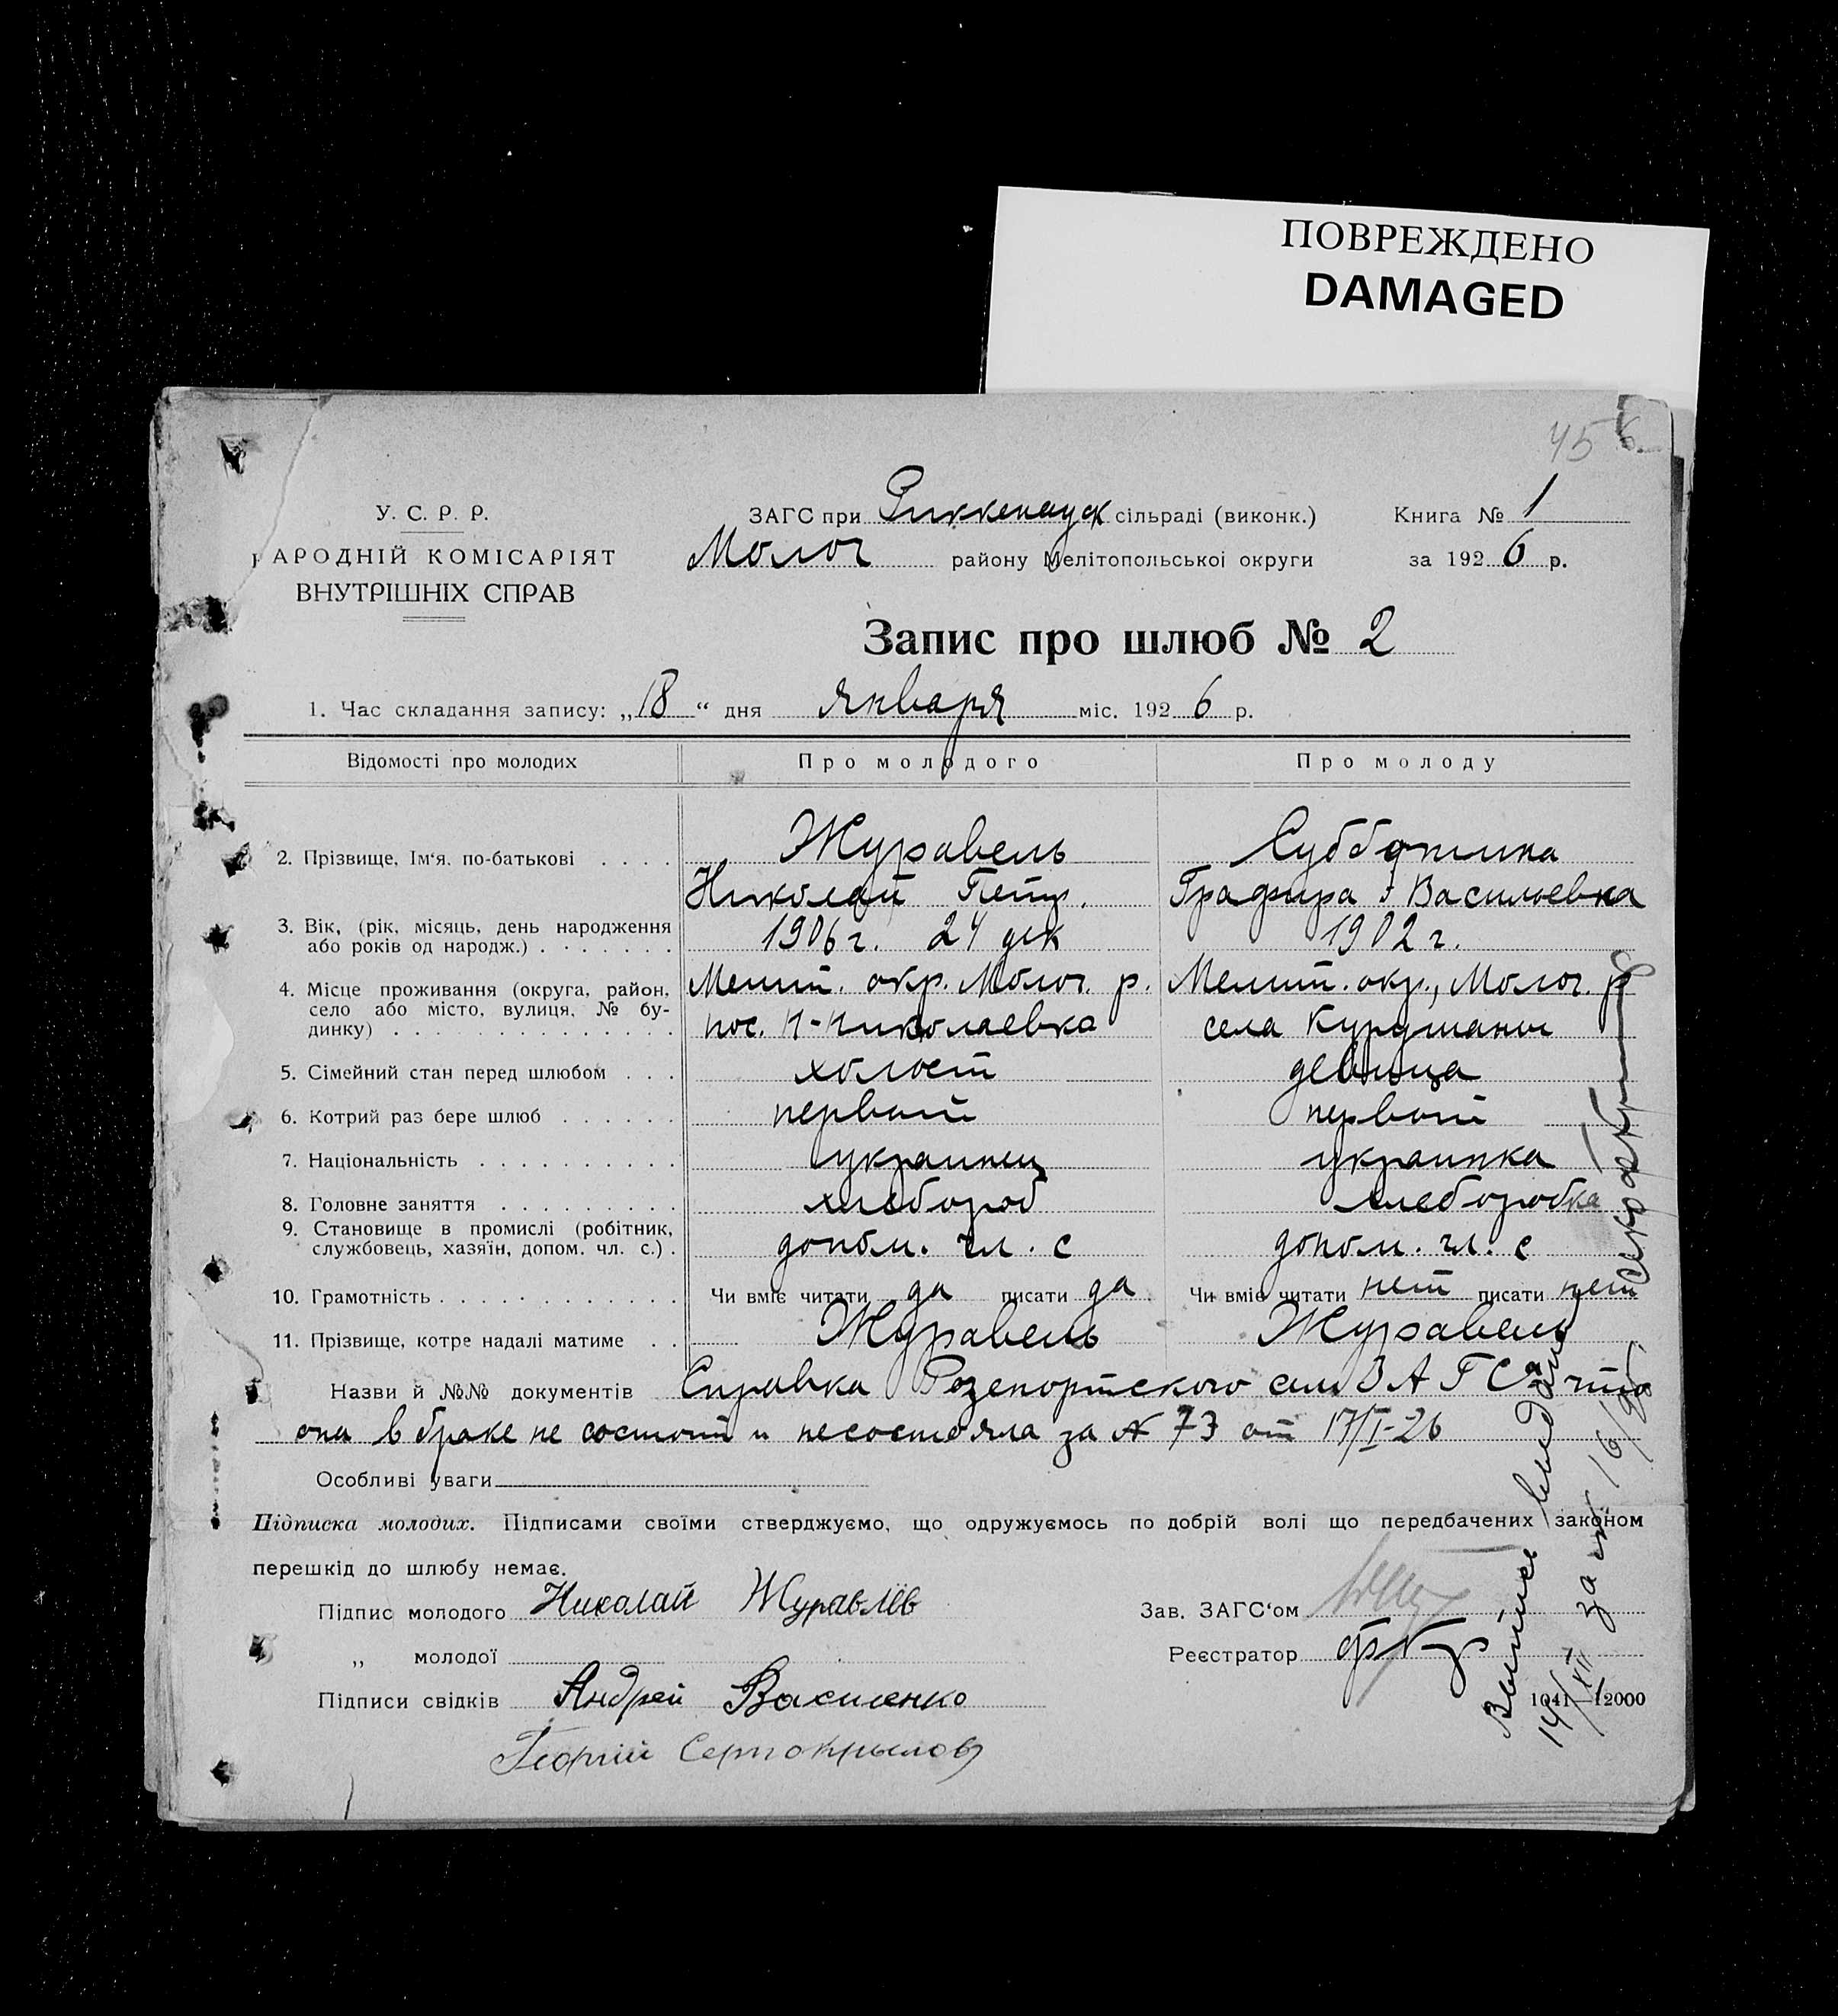 ПОВРЕЖДЕНО
DAMAGED
45
У. С. Р. Р.
АРОДНІЙ КОМІСАРІЯТ
ВНУТРІШНІХ СПРАВ
ЗАГС при Риккенауск сільраді (виконк.)
Молоч району Мелітопольської округи
Книга № 1
за 1926 р.
Запис про шлюб № 2
1. Час складання запису: „18“ дня января міс. 1926 р.
Відомості про молодих Про молодого Про молоду
2. Прізвище, Ім‘я, по-батькові . . . . Журавель Субботина
Николай Петр. Васильевна
3. Вік, (рік, місяць, день народження
або років од народж.) . . . . . . . 1906 г. 24 дек 1902 г.
4. Місце проживання (округа, район, Мелит. окр. Молоч. р. Мелит. окр., Молоч. р
село або місто, вулиця, № бу-
динку) . . . . . . . . . . . . . . . пос. Н-Николаевка села Курушаны
5. Сімейний стан перед шлюбом . . . холост девица
6. Котрий раз бере шлюб . . . . . . первый первый
7. Національність . . . . . . . . . . украинец украинка
8. Головне заняття . . . . . . . . . хлебороб хлеборобка
9. Становище в промислі (робітник,
службовець, хазяїн, допом. чл. с.) . допом. чл. с допом. чл. с
10. Грамотність . . . . . . . . . . . . Чи вміє читати да писати да Чи вміє читати нет писати нет
11. Прізвище, котре надалі матиме . . Журавель Журавель
Назви й №№ документів Справка Розенортского сель ЗАГСа что
она в браке не состоит и несостояла за № 73 от 17/I-26
Особливі уваги
Підписка молодих. Підписами своїми стверджуємо, що одружуємось по добрій волі що передбачених законом
перешкід до шлюбу немає.
Підпис молодого Николай Журавлёв
„ молодої
Підписи свідків Андрей Василенко
Георгий Серпокрылов
Зав. ЗАГС‘ом
Реєстратор
1041—12000
Выпись выдана
14/XII за № 16/96.